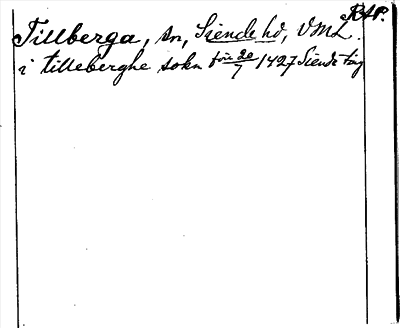 RAP.
Tillberga, sn, Siende hd, VML.
i tilleberghe sokn 20/7 1427 Siende ting